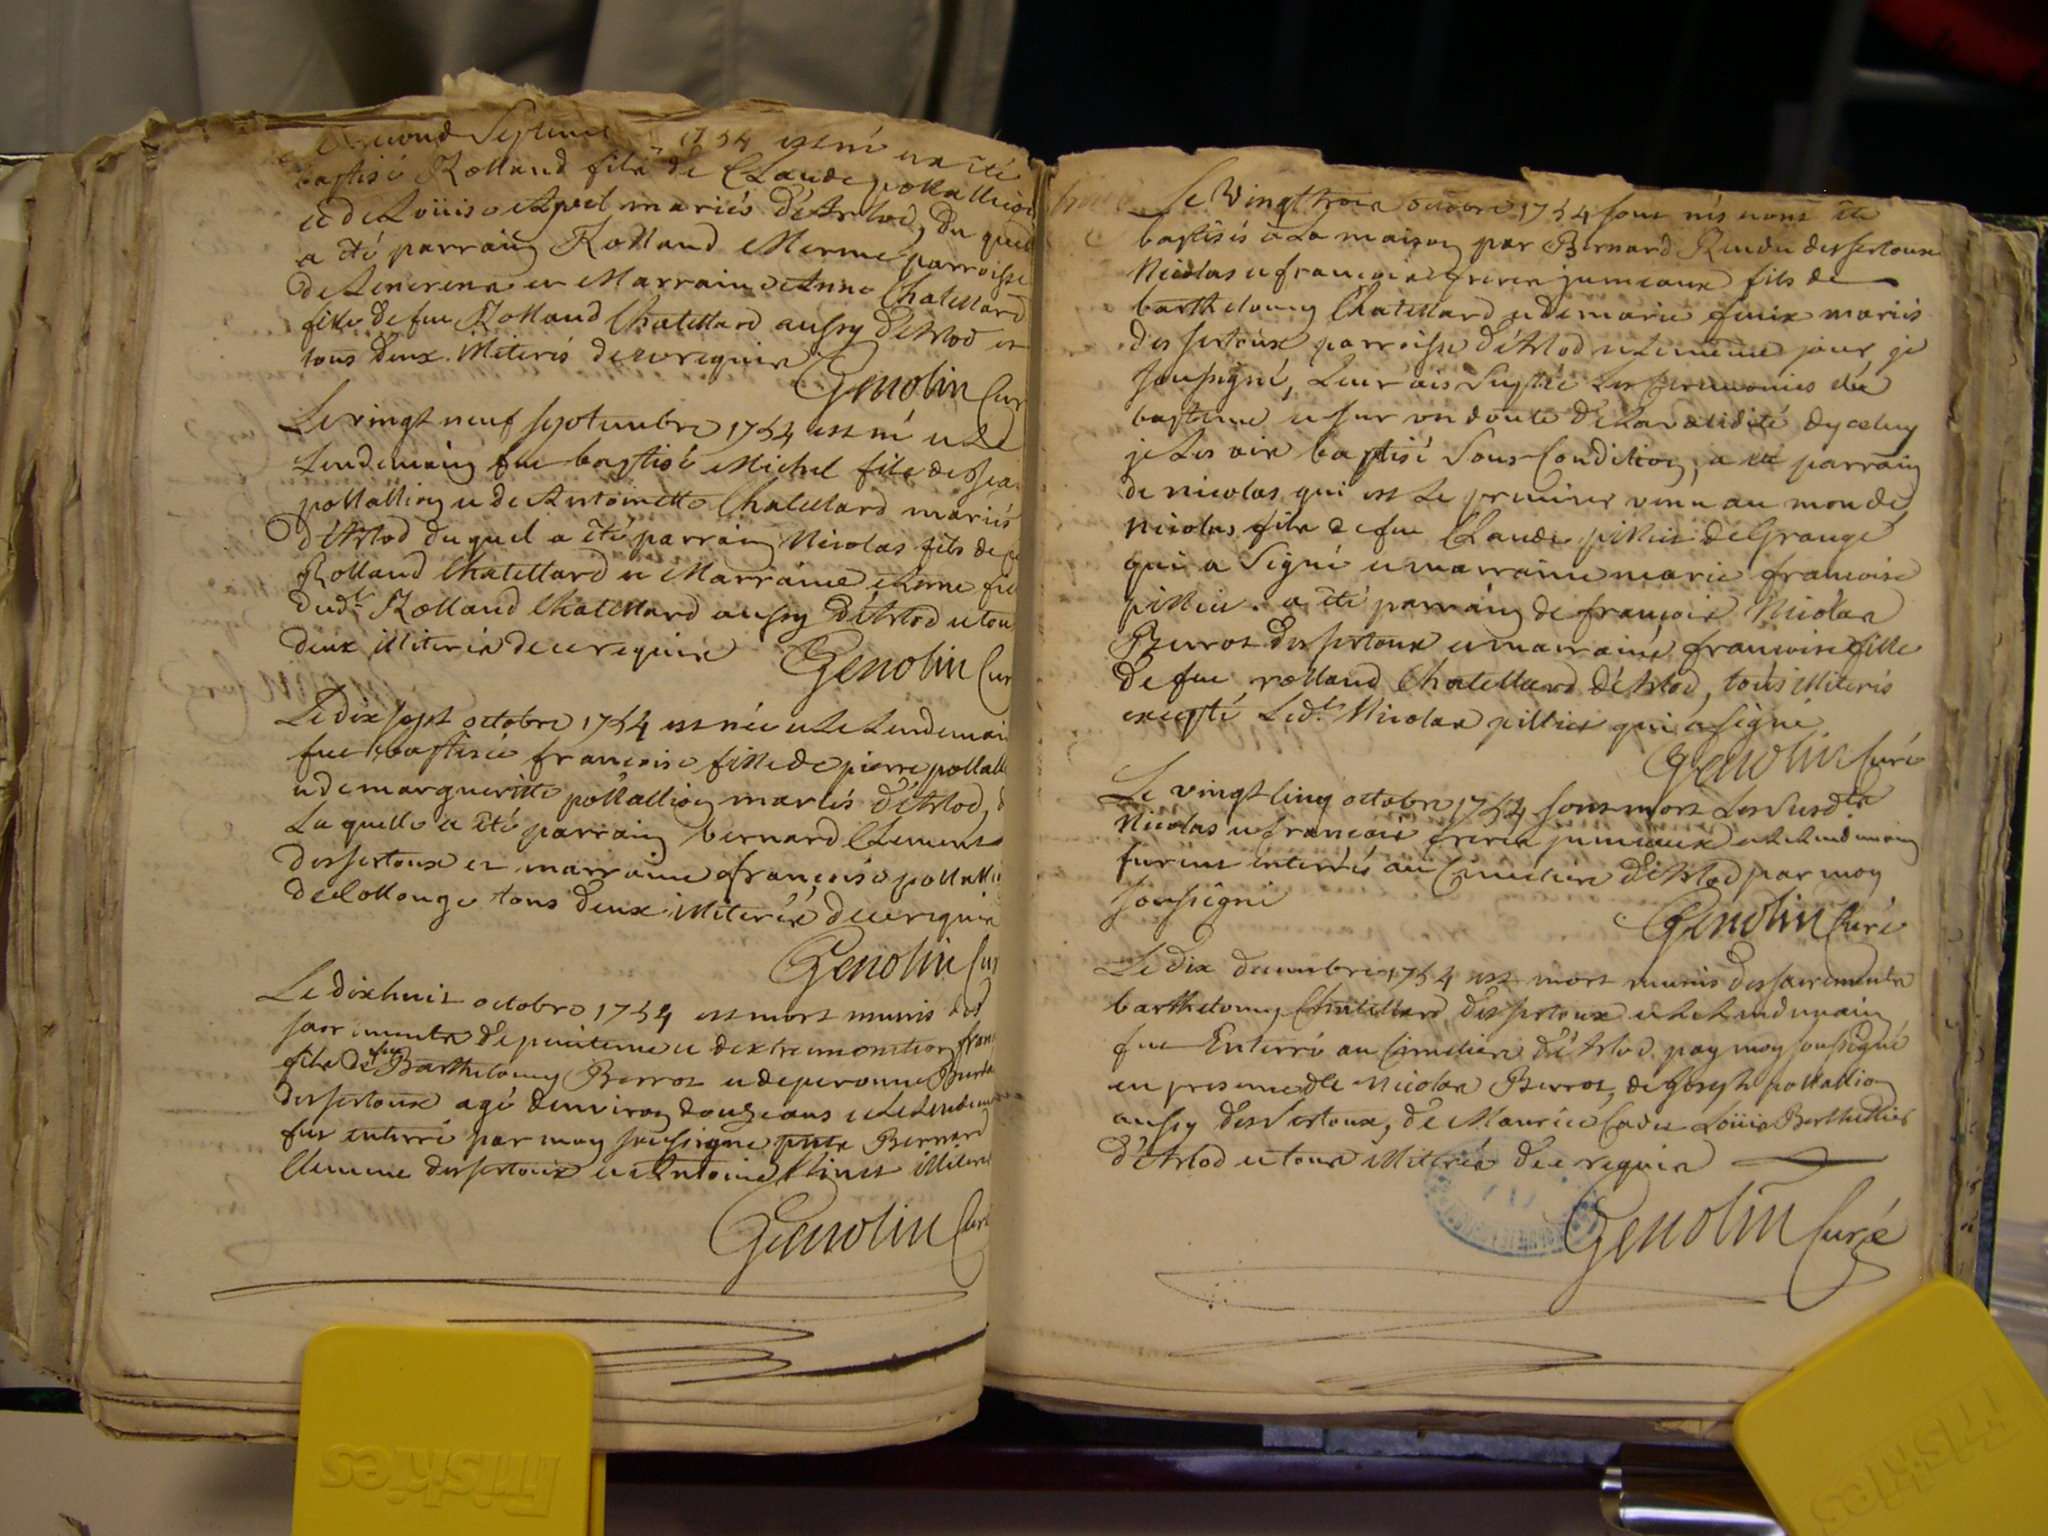 second Septembre 1754 est né et a été
baptisé Rolland fils de Claude pollallion
et de Loüise maries d'Arlod, du quel
a été parrain Rolland Merme parroisse
de et Marraine Anne Chatellard
fille de feu Rolland Chatellard aussy d'Arlod et
tous deux illiteris de ce requis
Genolin Cur
Le vingt neuf septembre 1754 est né et le
Lendemain fut baptisé Michel fils de Jea
pollallion et de Antoinette Chatellard mariés
d'Arlod duquel a été parrain Nicolas fils de
Rolland Chatellard et Marraine fil
dudt. Rolland Chatellard aussy d'Arlod et tou
deux illiteris de ce requis
Genolin Cur
Le dix sept octobre 1754 est née et le Lendemai
fut baptisée francoise fille de pierre pollall
et de margueritte pollallion mariés d'Arlod, d
La quelle a été parrain bernard Clement
des sertoux et marraine françoise pollalli
de Collonge tous deux illiteris de ce requis
Genolin Cur
Le dixhuit octobre 1754 est mort munis des
sacrements de penitence et d'extremonction fran
fils de feu Barthelomy Berrot et de peronne
des sertoux agé d'environ douze ans et le Lendemain
fut enterré par moy soussigné Bernard
Clemene des sertoux et Antoine illiteri
Genolin Curé
Le Vingt trois octobre 1754 sont nés et ont été
baptisés a La maison par Bernard Rendu des sertoux
Nicolas et francois freres jumeaux fils de
barthelomy Chatellard et de marie fenix mariés
des sertoux parroisse d'Arlod et Le meme jour je
soussigné, Leur ais Supléé Les ceremonies du
baptême et sur un doute de La validité d'yceluy
je Les ais baptisé Sous Condition, a été parrain
de nicolas qui est Le premier venu au monde,
Nicolas fils de feu Claude pillier de Grange
qui a Signé et marraine marie francoise
pillier. a été parrain de francois Nicolas
Berrot des sertoux et marraine francoise fille
de feu rolland Chatellard d'Arlod, tous illiteris
excepté Ledt. Nicolas pillier qui a signé
Genolin Curé
Le vingt Cinq octobre 1754 sont mort Les Susdts.
Nicolas et francois freres jumeaux et Le Lendemain
furent enterrés au Cimetiere d'Arlod par moy
soussigné
Genolin Curé
Le dix decembre 1754 est mort munis des sacrements
barthelomy Chatellard des sertoux et Le Lendemain
fut Enterré au Cimetiere d'Arlod pay moy soussigné
en presence de Nicolas Berrot, de Joseph pollallion
aussy des Sertoux, de Maurice Cadet Loüis Berthellier
d'Arlod et tous illiteris de ce requis
Genolin Curé
Friskies
Friskies